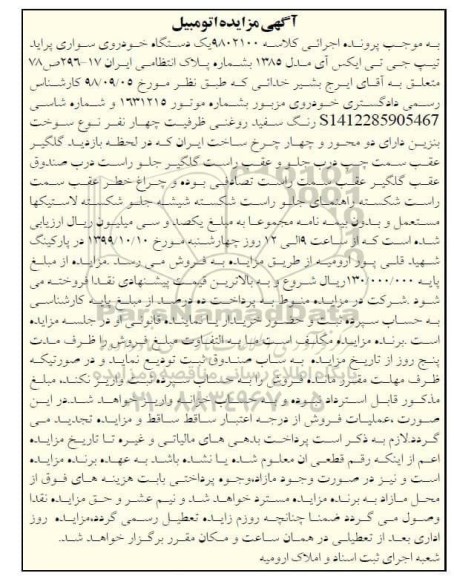 آگهی مزایده اتومبیل
به موجب پرونده اجرائی کلاسه ۹۸۰۲۱۰۰یک دستگاه خودروی سواری پراید
تیپ جی تی ایکس آی مدل ۱۳۸۵ بشماره پلاک انتظامی ایران ۱۷-۲۹۶ص۷۸
متعلق به آقای ایرج بشیر خدائی که طبق نظر مورخ ۹۸/۰۹/۰۵ کارشناس
رسمی دادگستری خودروی مزبور بشماره موتور ۱۶۳۱۲۱۵ و شماره شاسی
S1412285905467 رنگ سفید روغنی ظرفیت چهار نفر نوع سوخت
بنزین دارای دو محور و چهار چرخ ساخت ایران که در لحظه بازدید گلگیر
عقب سمت چپ درب جلو و عقب راست گلگیر جلو راست درب صندوق
عقب گلگیر عقب سمت راست تصادفی بوده و چراغ خطر عقب سمت
راست شکسته راهنمای جلو راست شکسته شیشه جلو شکسته لاستیکها
مستعمل و بدون بیمه نامه مجموعا به مبلغ یکصد و سی میلیون ریال ارزیابی
شده است که از ساعت ۹الی ۱۲ روز چهارشنبه مورخ ۱۳۹۹/۱۰/۱۰ در پارکینگ
شهید قلی پور ارومیه از طریق مزایده به فروش می رسد .مزایده از مبلغ
پایه ۱۳۰/۰۰۰/۰۰۰ریال شروع و به بالاترین قیمت پیشنهادی نقدا فروخته می
شود .شرکت در مزایده منوط به پرداخت ده درصد از مبلغ پایه کارشناسی
به حساب سپرده ثبت و حضور خریدار یا نماینده قانونی او در جلسه مزایده
است .برنده مزایده مکلف است مابه التفاوت مبلغ فروش را ظرف مدت
پنج روز از تاریخ مزایده به حساب صندوق ثبت تودیع نماید و در صورتیکه
ظرف مهلت مقرر مانده فروش را به حساب سپرده ثبت واریز نکند، مبلغ
مذکور قابل استرداد نبوده و به حساب خزانه واریز خواهد شد.در این
صورت ،عملیات فروش از درجه اعتبار ساقط ساقط و مزایده تجدید می
گردد.لازم به ذکر است پرداخت بدهی های مالیاتی و غیره تا تاریخ مزایده
اعم از اینکه رقم قطعی ان معلوم شده یا نشده باشد به عهده برنده مزایده
است و نیز در صورت وجود مازاد،وجوه پرداختی بابت هزینه های فوق از
محل مازاد به برنده مزایده مسترد خواهد شد و نیم عشر و حق مزایده نقدا
وصول می گردد ضمنا چنانچه روزم زایده تعطیل رسمی گردد،مزایده روز
اداری بعد از تعطیلی در همان ساعت و مکان مقرر برگزار خواهد شد.
شعبه اجرای ثبت اسناد و املاک ارومیه
ParsNamadData
پایگاه اطلاع رسانی مناقصه و مزایده
۰۲۱-۸۸۳۴۹۶۷۰-۵